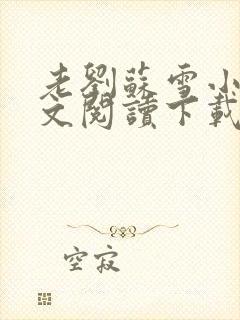 老劉蘇雪小
文閱讀下載
空寂